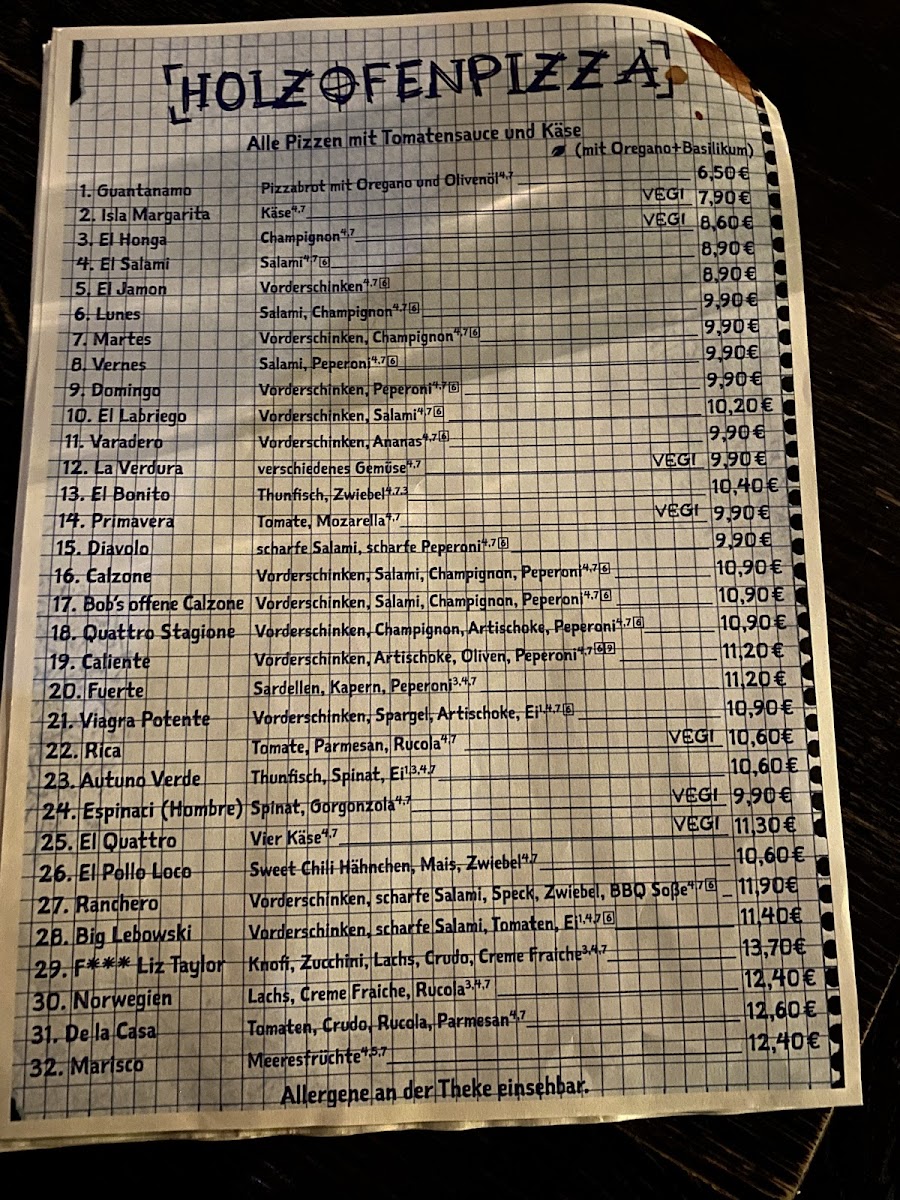 HOLZOFENPIZZA
Alle Pizzen mit Tomatensauce und Käse
(mit Oregano+Basilikum)
1. Guantanamo Pizzabrot mit Oregano und Olivenöl4,7 6,50€
2. Isla Margarita Käse4,7 VEGI 7,90€
3. El Honga Champignon4,7 VEGI 8,60€
4. El Salami Salami4,7 6 8,90€
5. El Jamon Vorderschinken4,7 6 8,90€
6. Lunes Salami, Champignon4,7 6 9,90€
7. Martes Vorderschinken, Champignon4,7 6 9,90€
8. Vernes Salami, Peperoni4,7 6 9,90€
9. Domingo Vorderschinken, Peperoni4,7 6 9,90€
10. El Labriego Vorderschinken, Salami4,7 6 10,20€
11. Varadero Vorderschinken, Ananas4,7 6 9,90€
12. La Verdura verschiedenes Gemüse4,7 VEGI 9,90€
13. El Bonito Thunfisch, Zwiebel4,7,3 10,40€
14. Primavera Tomate, Mozarella4,7 VEGI 9,90€
15. Diavolo scharfe Salami, scharfe Peperoni4,7 6 9,90€
16. Calzone Vorderschinken, Salami, Champignon, Peperoni4,7 6 10,90€
17. Bob's offene Calzone Vorderschinken, Salami, Champignon, Peperoni4,7 6 10,90€
18. Quattro Stagione Vorderschinken, Champignon, Artischoke, Peperoni4,7 6 10,90€
19. Caliente Vorderschinken, Artischoke, Oliven, Peperoni4,7 6 9 11,20€
20. Fuerte Sardellen, Kapern, Peperoni3,4,7 11,20€
21. Viagra Potente Vorderschinken, Spargel, Artischoke, Ei1,4,7 6 10,90€
22. Rica Tomate, Parmesan, Rucola4,7 VEGI 10,60€
23. Autuno Verde Thunfisch, Spinat, Ei1,3,4,7 10,60€
24. Espinaci (Hombre) Spinat, Gorgonzola4,7 VEGI 9,90€
25. El Quattro Vier Käse4,7 VEGI 11,30€
26. El Pollo Loco Sweet Chili Hähnchen, Mais, Zwiebel4,7 10,60€
27. Ranchero Vorderschinken, scharfe Salami, Speck, Zwiebel, BBQ Soße4,7 6 11,90€
28. Big Lebowski Vorderschinken, scharfe Salami, Tomaten, Ei1,4,7 6 11,40€
29. F*** Liz Taylor Knofi, Zucchini, Lachs, Crudo, Creme Fraiche3,4,7 13,70€
30. Norwegien Lachs, Creme Fraiche, Rucola3,4,7 12,40€
31. De la Casa Tomaten, Crudo, Rucola, Parmesan4,7 12,60€
32. Marisco Meeresfrüchte4,5,7 12,40€
Allergene an der Theke einsehbar.